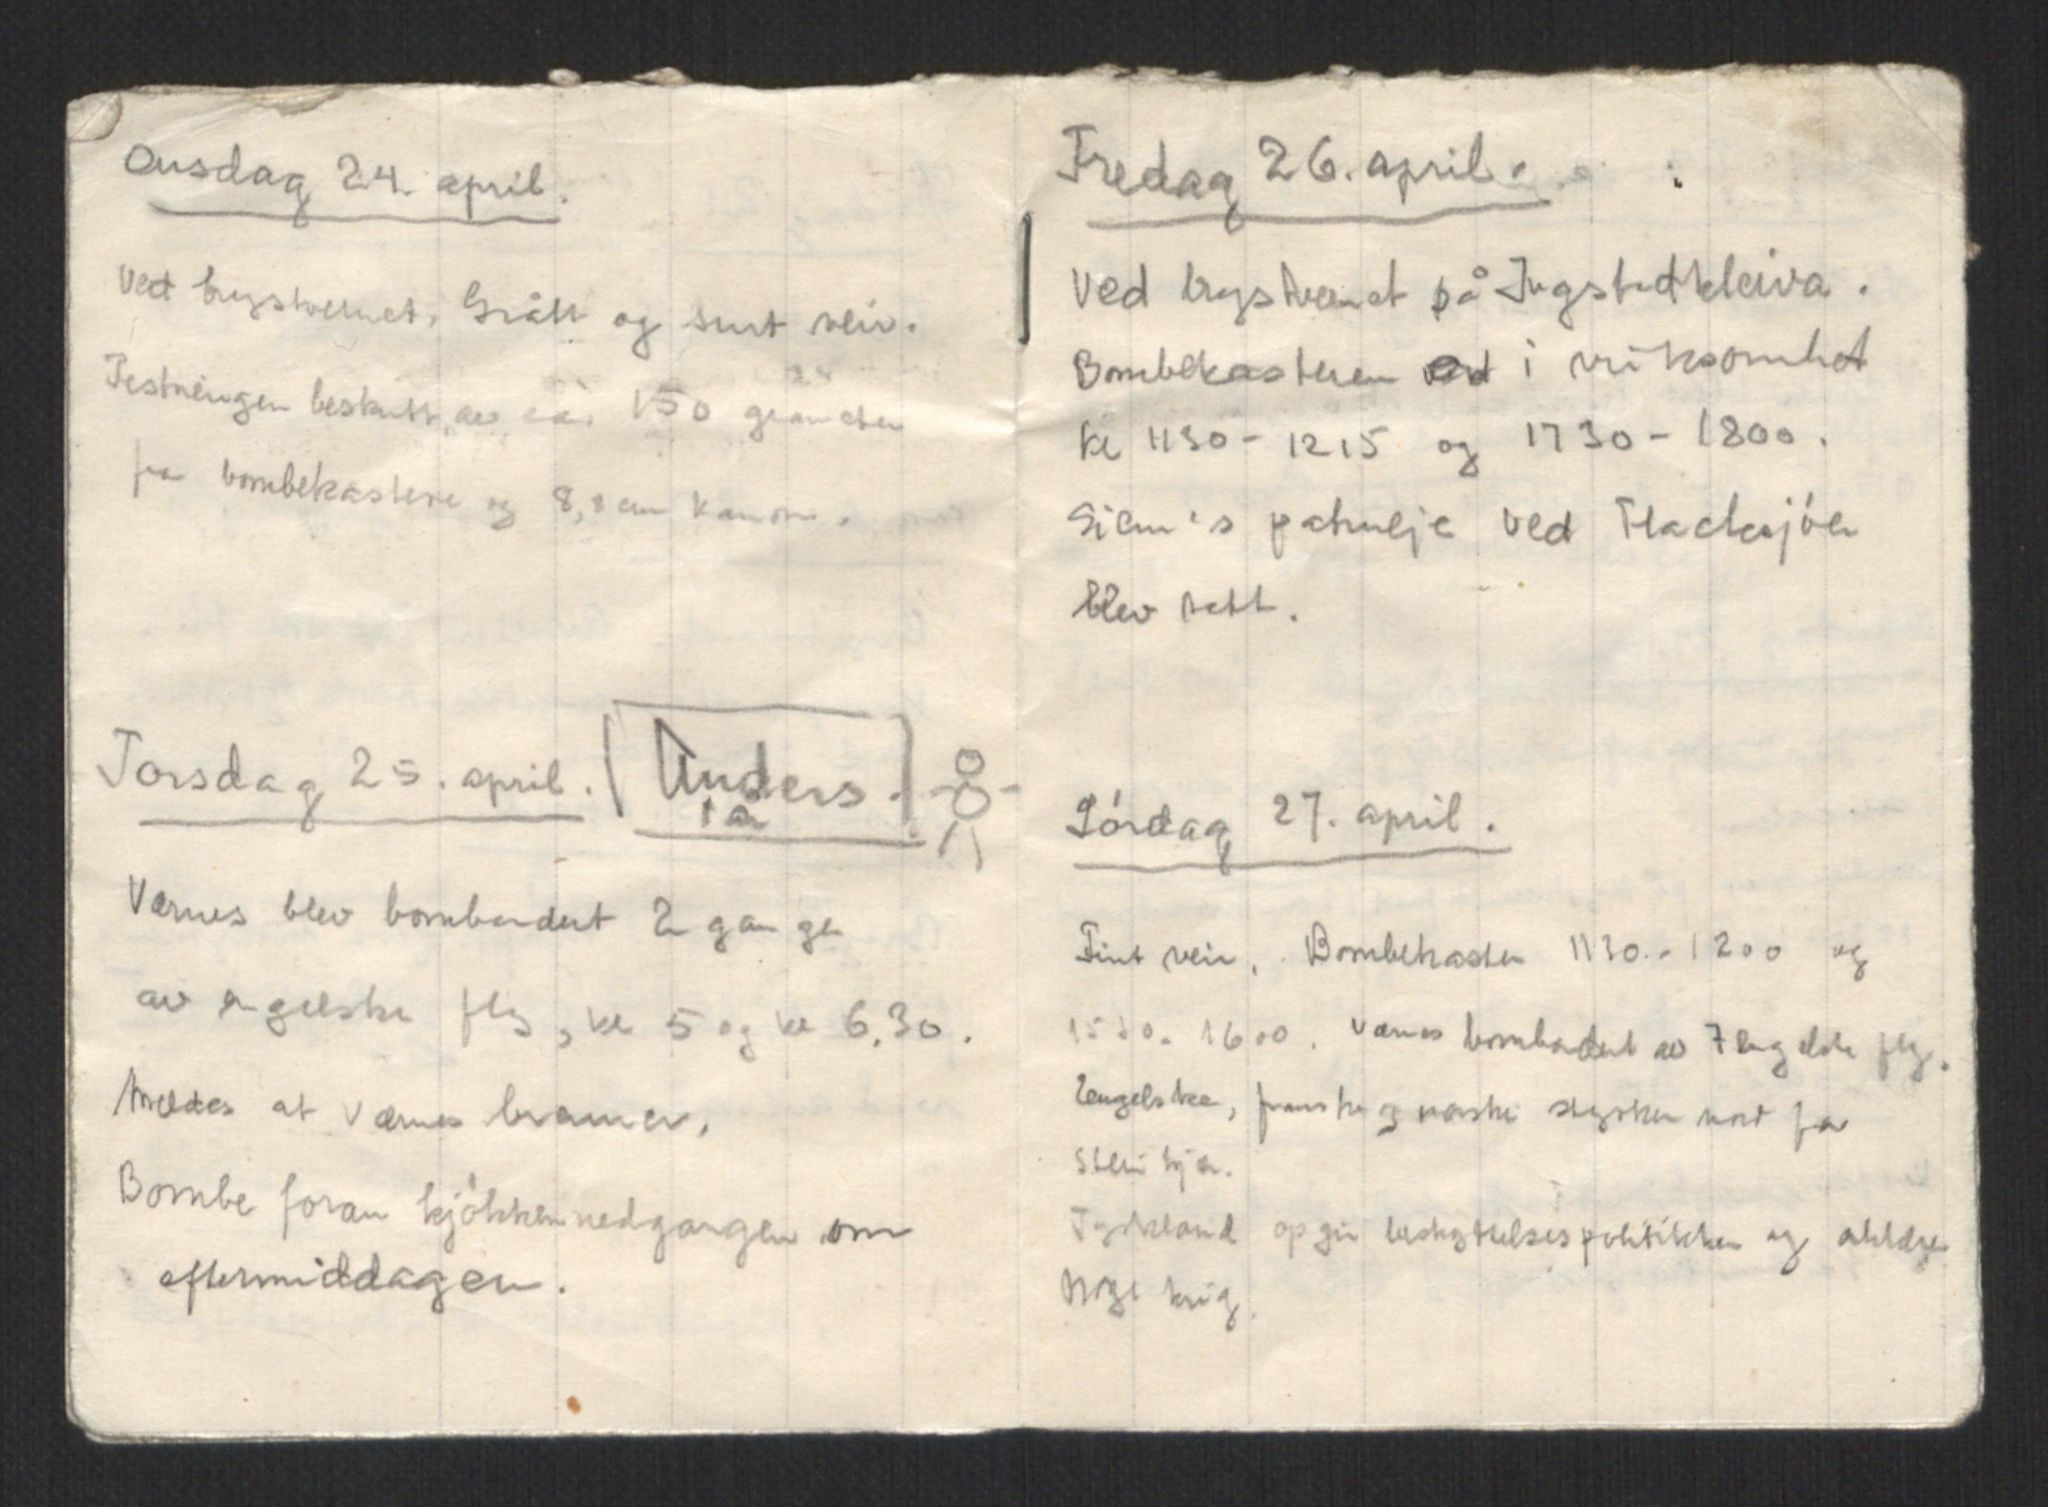 Onsdag 24. april.
Ved brystvernet. Grått og surt veir.
Festningen beskutt av ca. 150 granater
fra bombekastere og 8,8 cm kanon.
Torsdag 25. april. Anders
Værnes blev bombardert 2 ganger
av engelske fly, kl 5 og kl 6,30.
Meldes at Værnes brenner.
Bombe foran kjókkennedgangen om
eftermiddagen.
Fredag 26. april.
Ved brystvernet på Ingstadkleiva.
Bombekasteren i virksomhet
kl 1130 - 1215 og 1730 - 1800.
Siem's patrulje ved Flacksjóen
blev tatt.
Lórdag 27. april.
Fint veir. Bombekasten 1130 - 1200 og
1530 - 1600. Værnes bombardert av 7 engelske fly.
Engelske, franske og norske styrker nord for
Steinkjer.
Tyskland opgir beskyttelsespolitikken og erklærer
Norge krig.